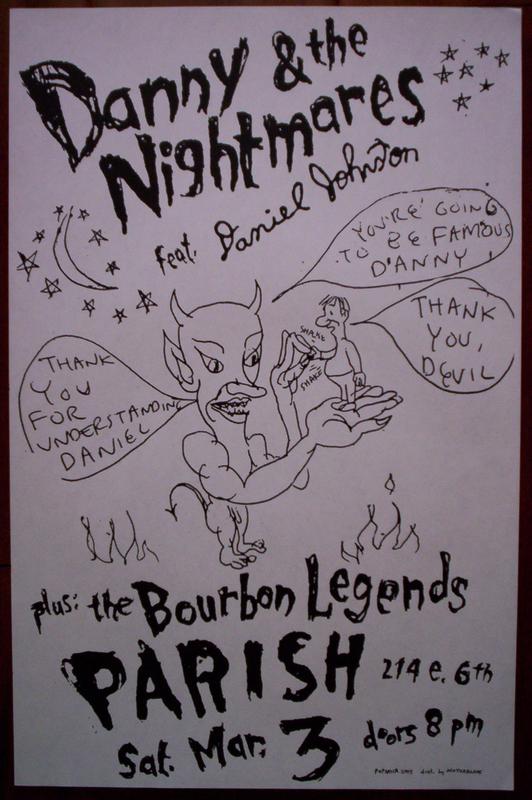 Danny & the
Nightmares
feat. Daniel Johnston
YOU'RE GOING
TO BE FAMOUS
D'ANNY
THANK
YOU,
DEVIL
SHAKE
SHAKE
THANK
YOU
FOR
UNDERSTANDING
DANIEL
plus: the Bourbon Legends
PARISH 214 e. 6th
Sat. Mar. 3 doors 8 pm
dist. by